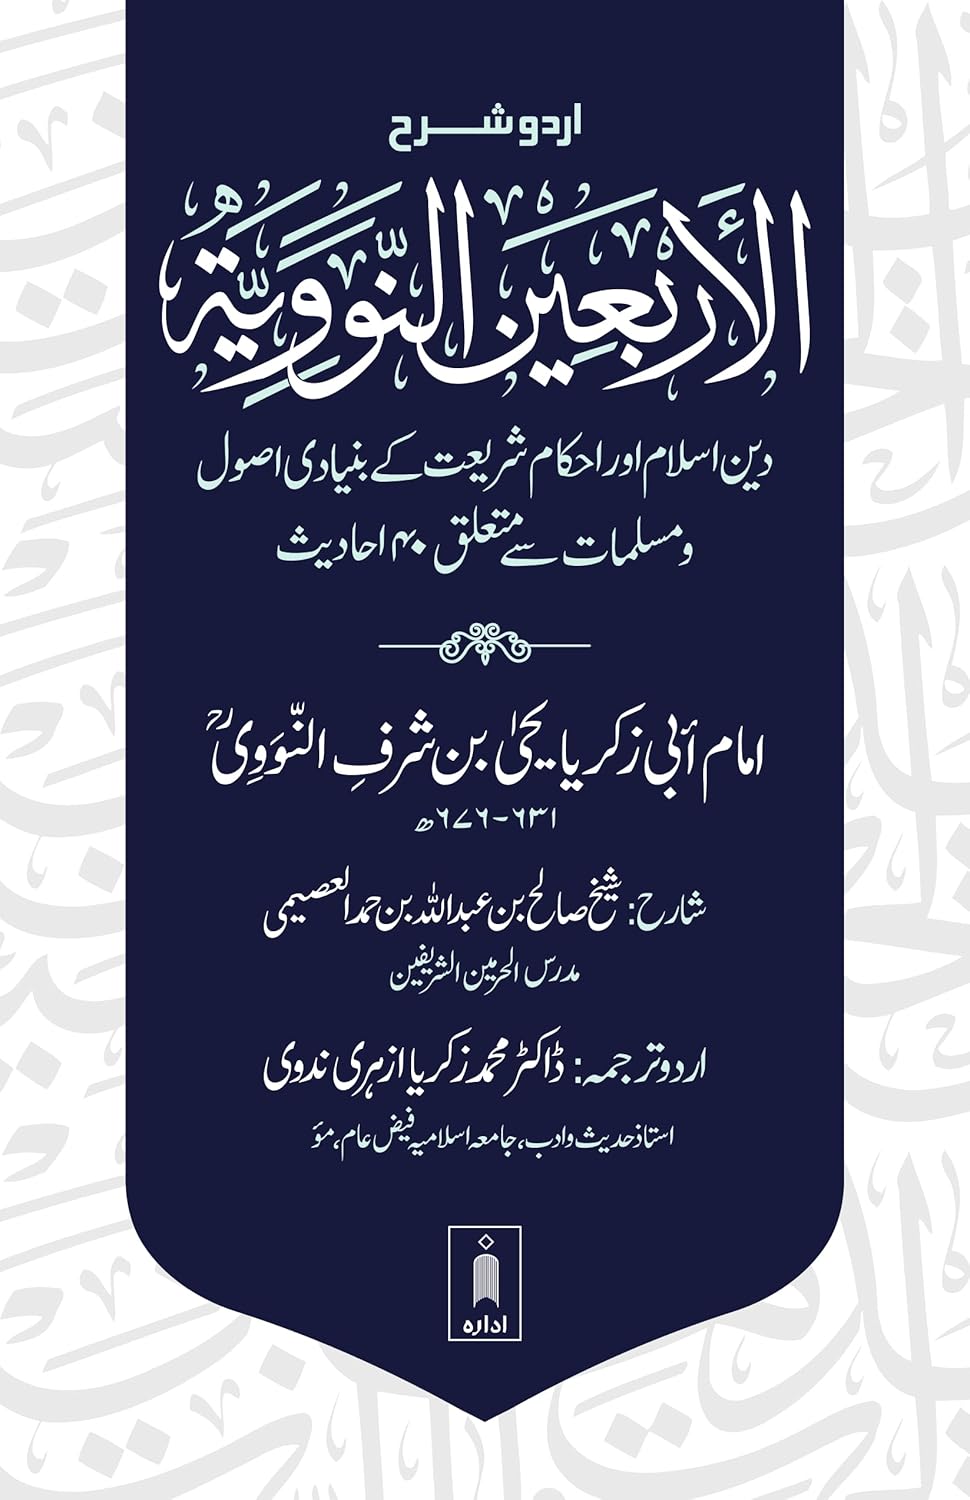 اردو شرح
الأَرْبَعِيْنَ النَّوَوِيَّةُ
دین اسلام اور احکام شریعت کے بنیادی اصول
و مسلمات سے متعلق ۴۰ احادیث
امام أبی زکریا یحیٰ بن شرفِ النَّوَوِیؒ
۶۳۱-۶۷۶ھ
شارح: شیخ صالح بن عبداللہ بن حمد العصیمی
مدرس الحرمین الشریفین
اردو ترجمہ: ڈاکٹر محمد زکریا ازہری ندوی
استاذ حدیث و ادب، جامعہ اسلامیہ فیض عام، مؤ
ادارہ